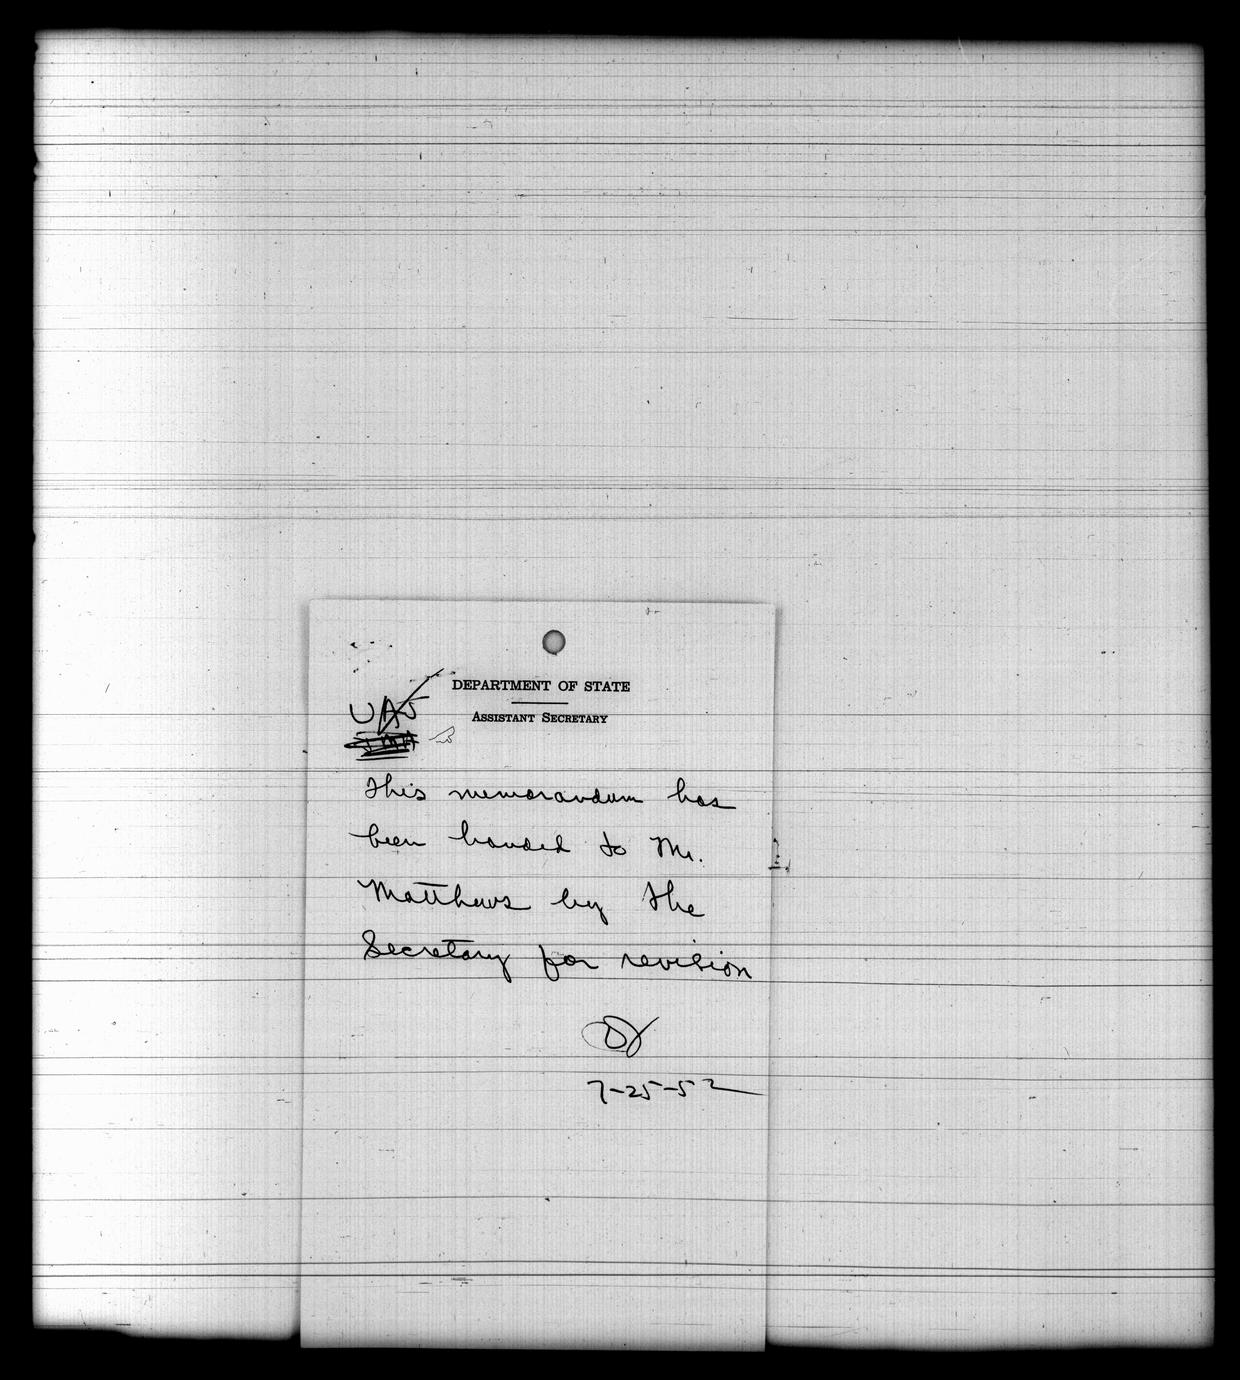 DEPARTMENT OF STATE
ASSISTANT SECRETARY
This memorandum has
been handed to Mr.
Matthews by the
Secretary for revision
7-25-52